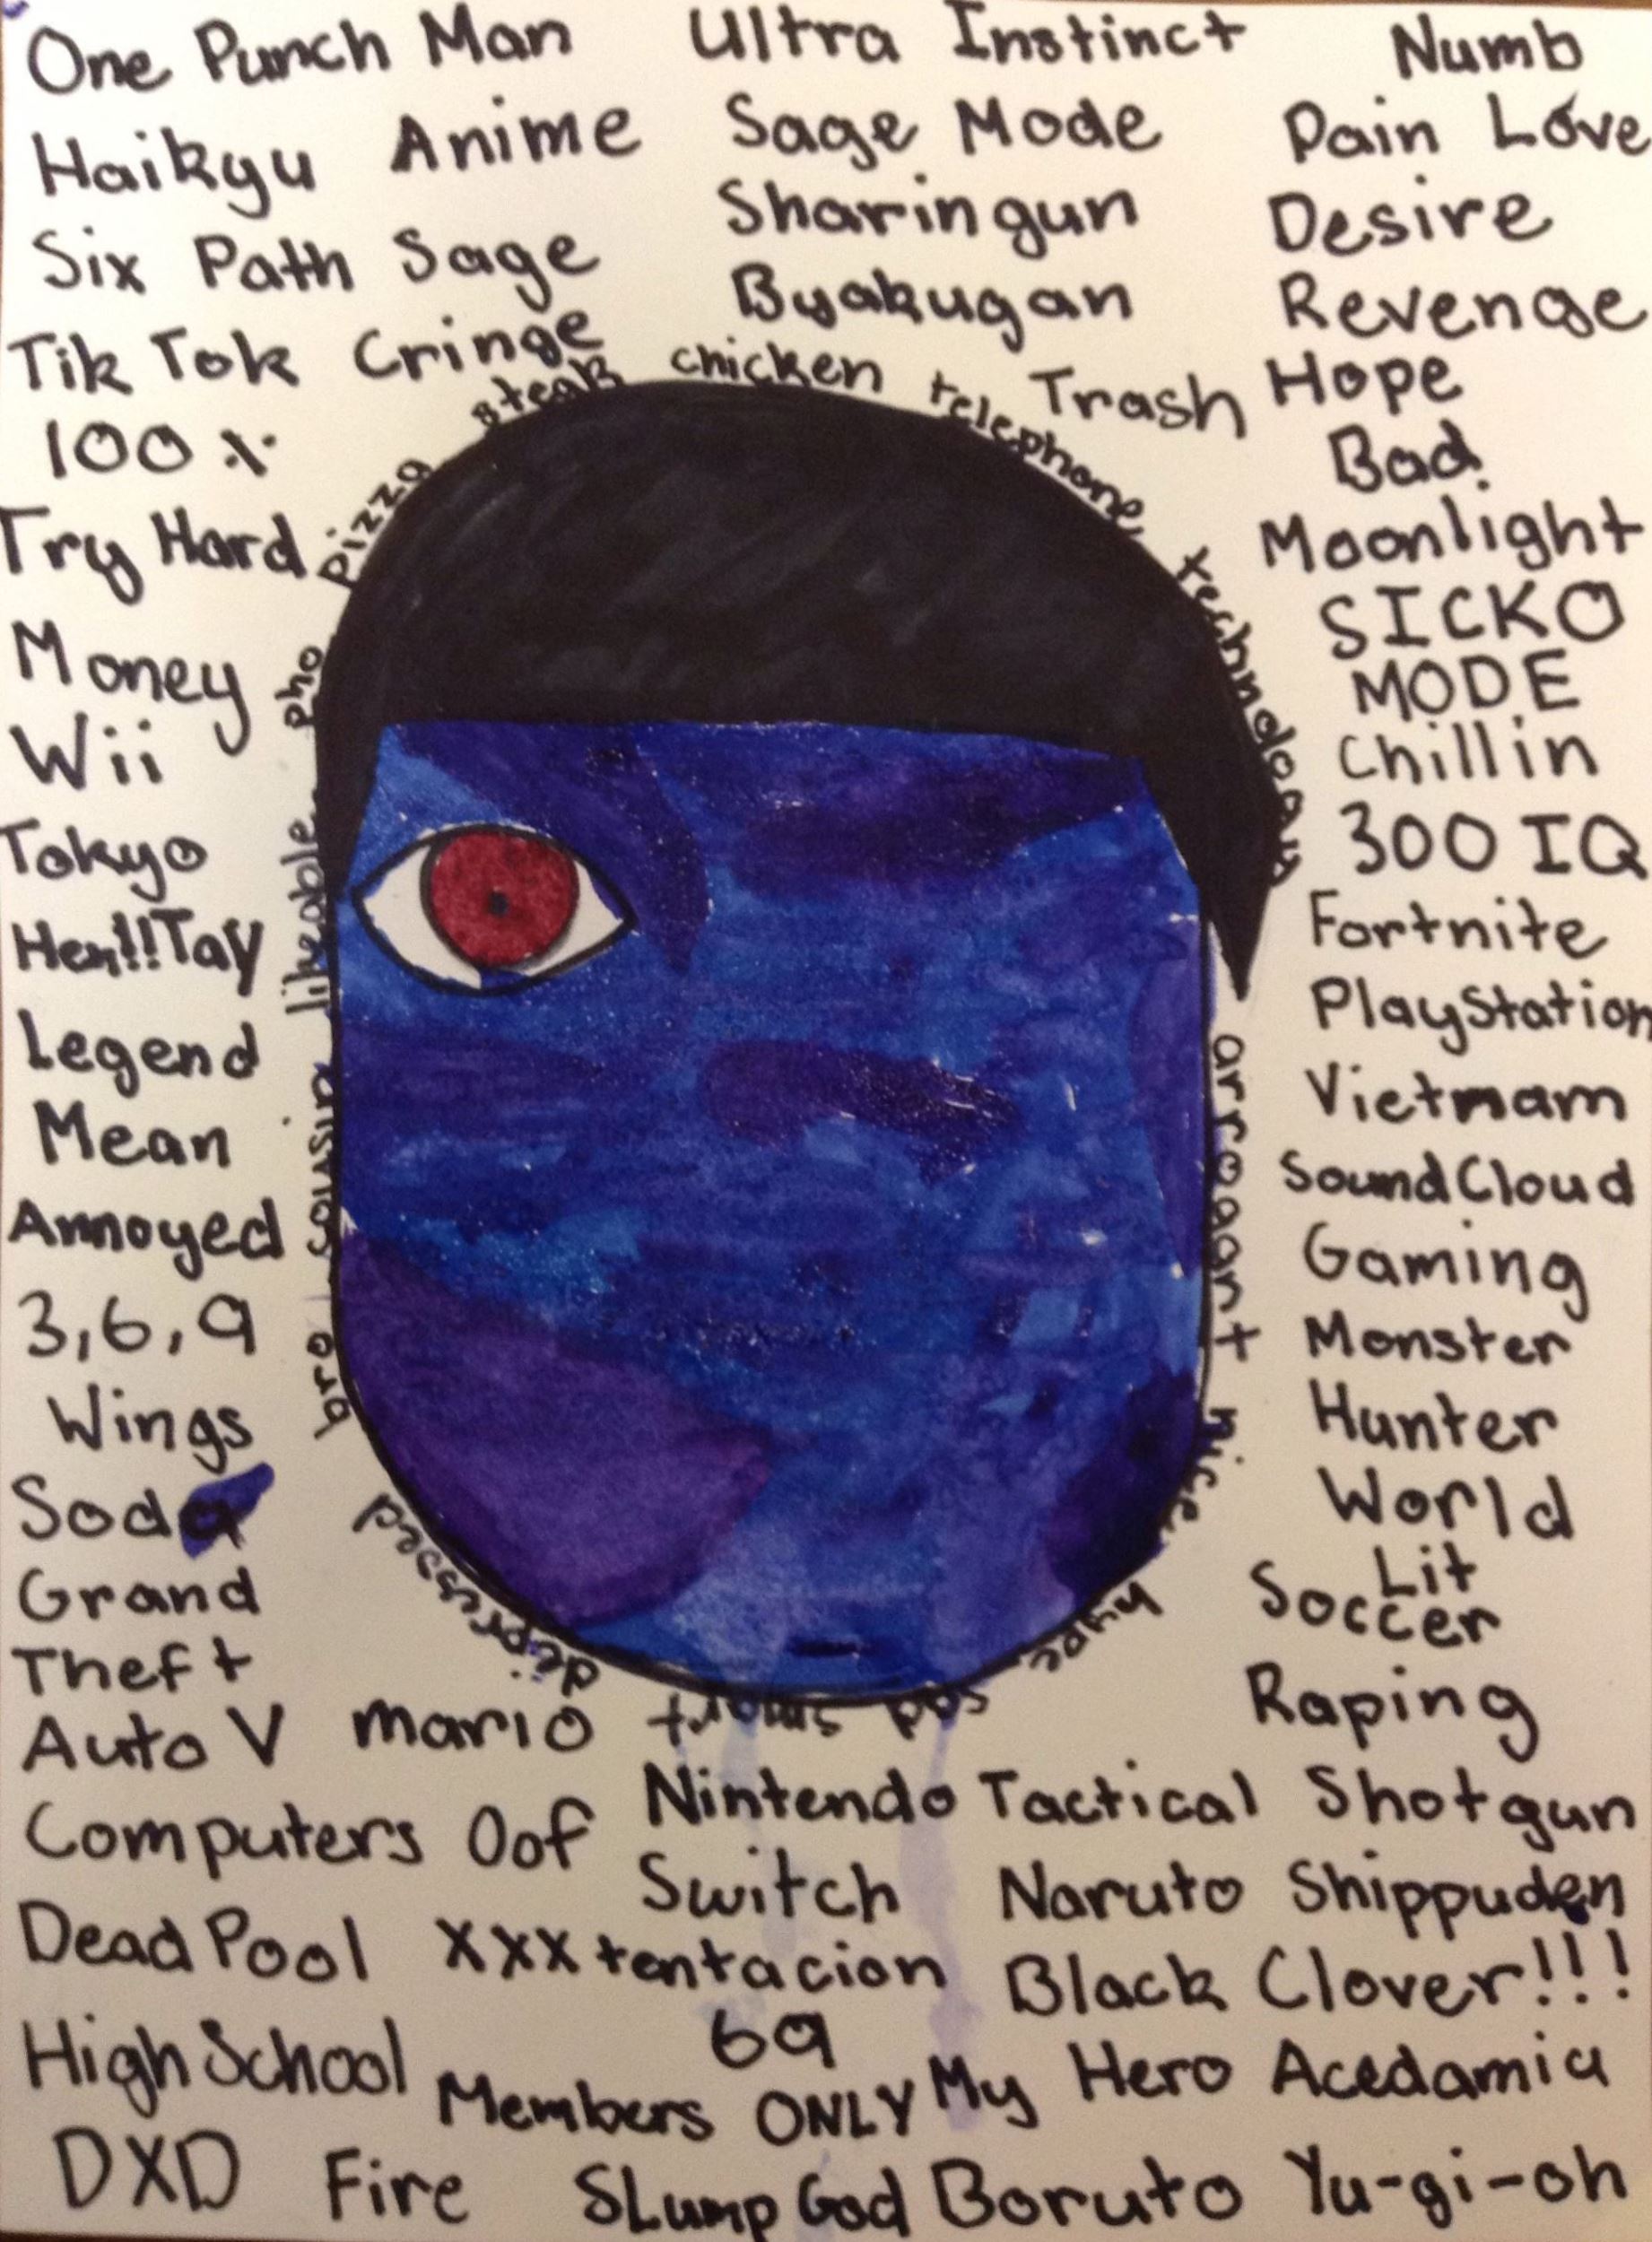 One Punch Man
Haikyu Anime
Six Path Sage
Tik Tok Cringe
100 %
Try Hard
Money
Wii
Tokyo
Hen!!Tay
Legend
Mean
Annoyed
3,6,9
Wings
Soda
Grand
Theft
Auto V
Mario
Computers Oof
DeadPool
XXXtentacion
High School
DXD
Fire
Ultra Instinct
Sage Mode
Sharingun
Byakugan
Trash
Numb
Pain Love
Desire
Revenge
Hope
Bad
Moonlight
SICKO
MODE
Chillin
300 IQ
Fortnite
PlayStation
Vietnam
SoundCloud
Gaming
Monster
Hunter
World
Lit
Soccer
Raping
Nintendo
Switch
Tactical Shotgun
Naruto Shippuden
Black Clover!!!
69
Members ONLY
My Hero Acedamia
SLump God
Boruto
Yu-gi-oh
bro cousin likeable pho pizza steak chicken telephone technology arrogant nice hype sad smart depressed